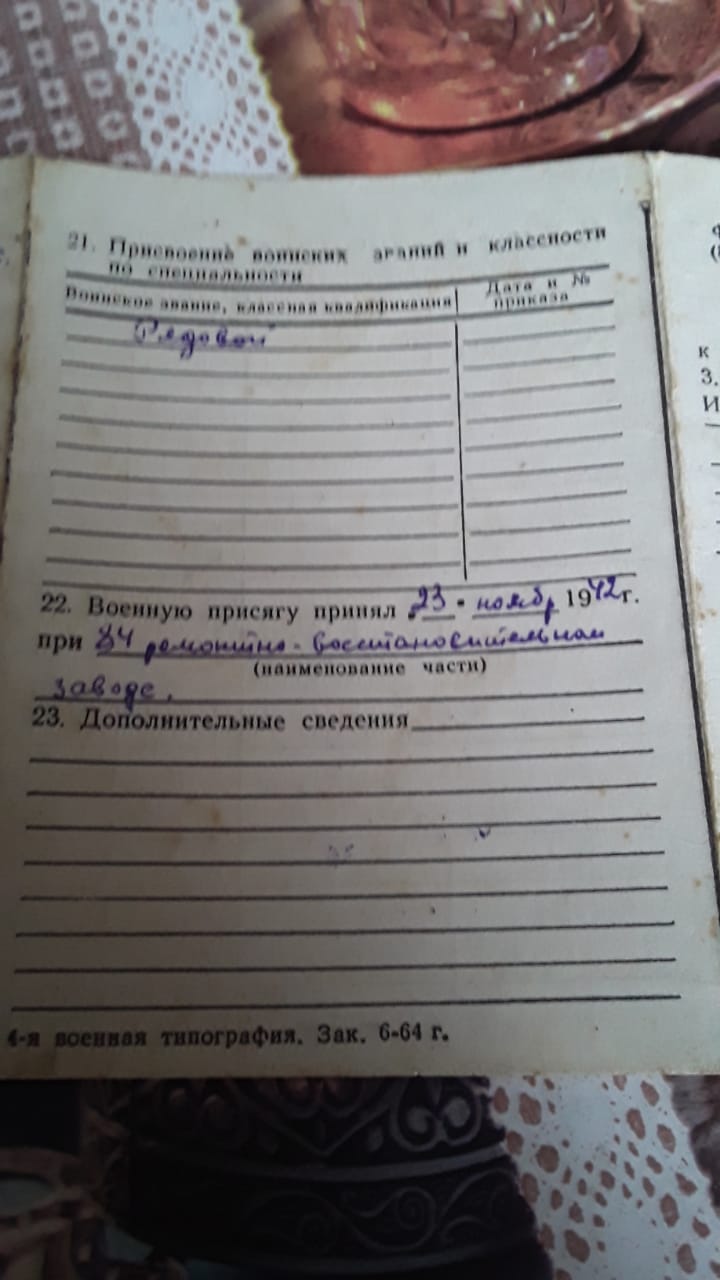 21. Присвоение воинских званий и классности
по специальности
Воинское звание, классная квалификация
Дата и №
приказа
Рядовой
22. Военную присягу принял 23 ноябр 1942г.
при 84 ремонтно-восстановительном
(наименование части)
заводе.
23. Дополнительные сведения
4-я военная типография. Зак. 6-64 г.
к
3.
И